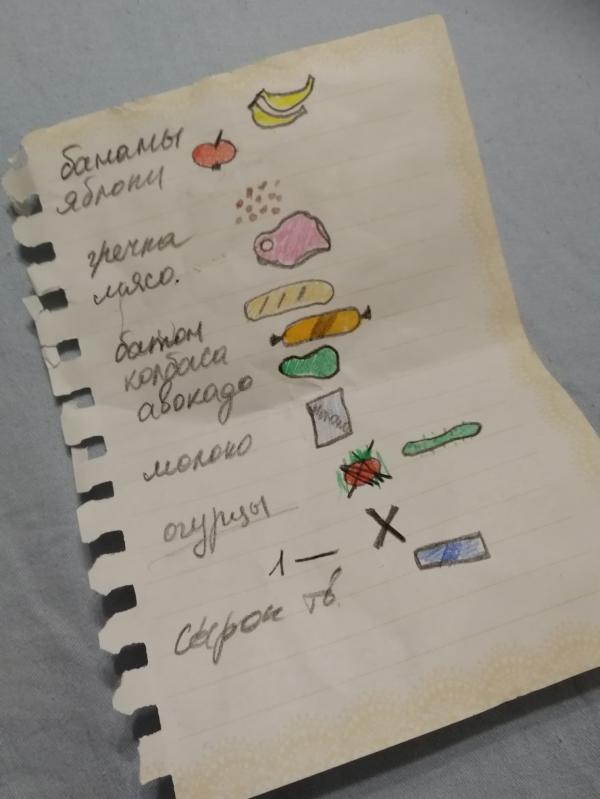 бананы
яблоки
гречка
мясо.
батон
колбаса
авокадо
молоко
молоко
огурцы
1 —
сырок тв.